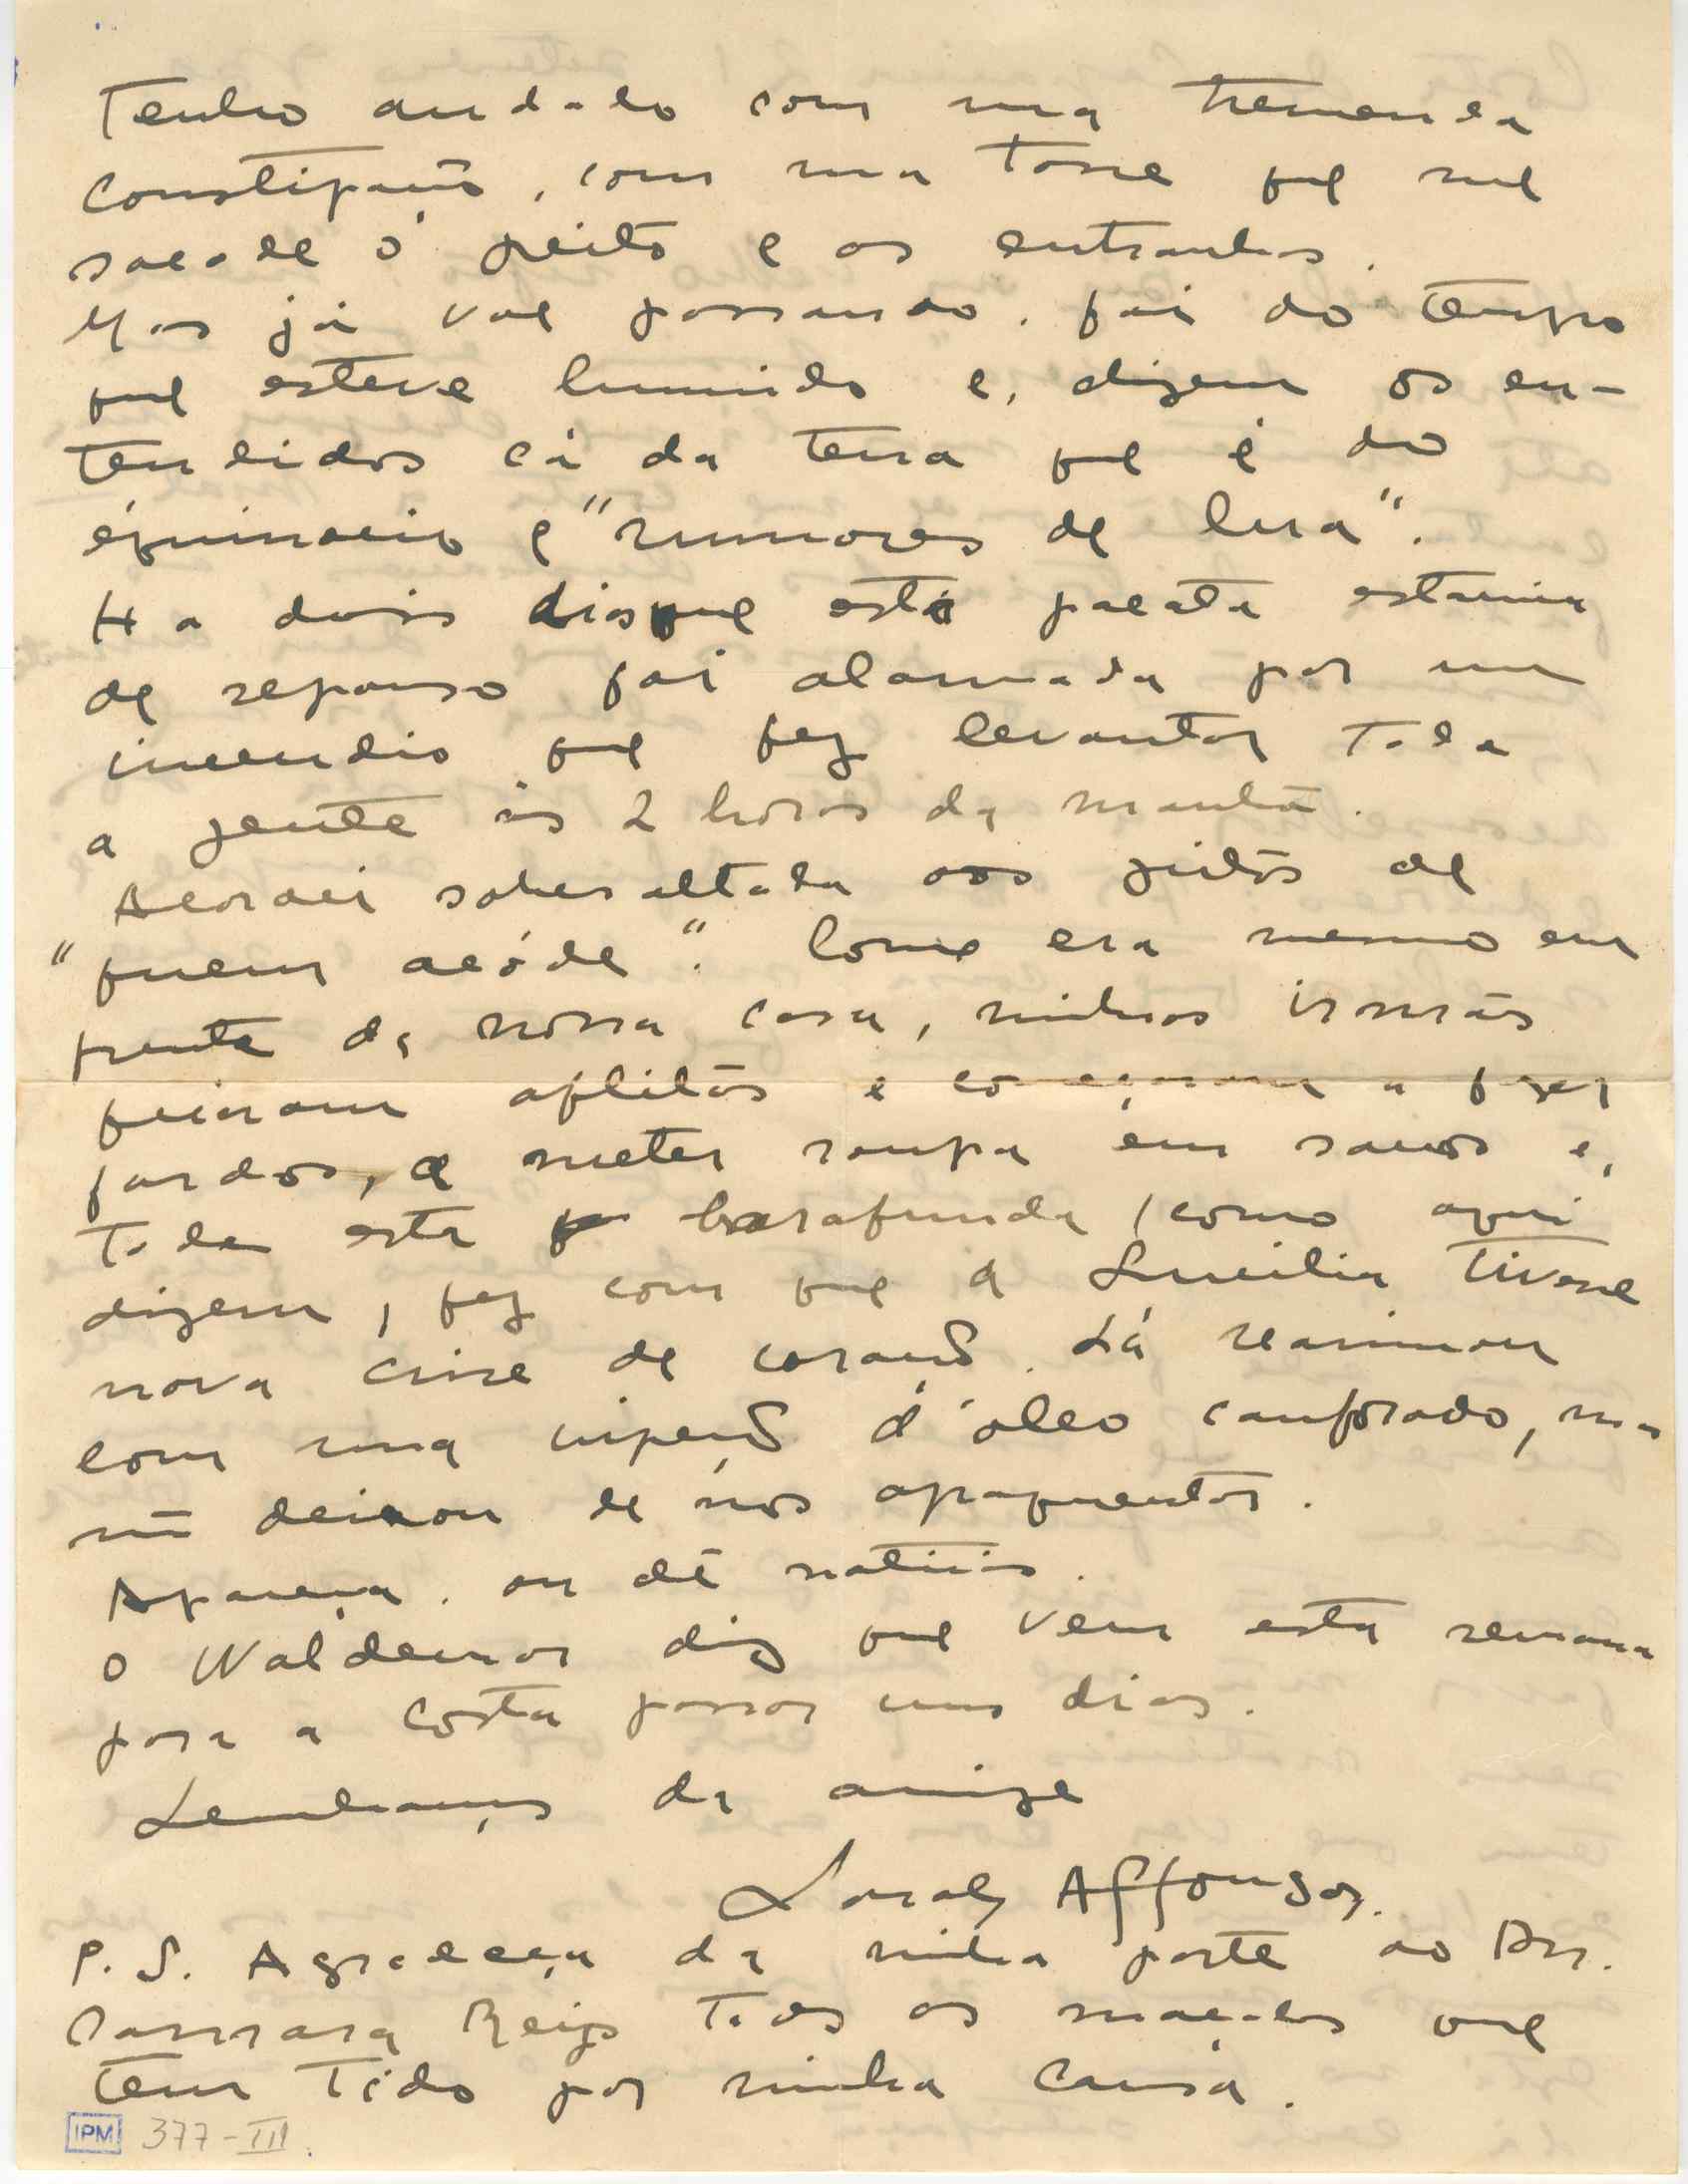 Tenho andado com uma tremenda
constipação, com uma tosse que me
sacode o peito e as entranhas.
Mas já vae passando. Foi do tempo
que esteve humido e, dizem os en-
tendidos cá da terra que é do
équinocio e "rumores de lua".
Ha dois dias que esta pacata estancia
de repouso foi alarmada por um
incendio que fez levantar toda
a gente ás 2 horas da manhã.
Acordei sobresaltada aos gritos de
"quem acóde". Como era mesmo em
frente da nossa casa, minhas irmãs
ficaram aflitas e começaram a fazer
fardos, a meter roupa em sacos e,
toda esta barafunda (como aqui
dizem) fez com que a Lucilia tivesse
nova crise de coração. Lá reanimou
com uma injeção d'oleo canforado, mas
não deixou de nos apoquentar.
Apareça, ou dê noticias.
O Waldemar diz que vem esta semana
para a Costa passar uns dias.
Lembranças da amiga
Sarah Affonso.
P.S. Agradeça da minha parte ao Dr.
Camara Reys todas as maçadas que
tem tido por minha causa.
IPM 377-III